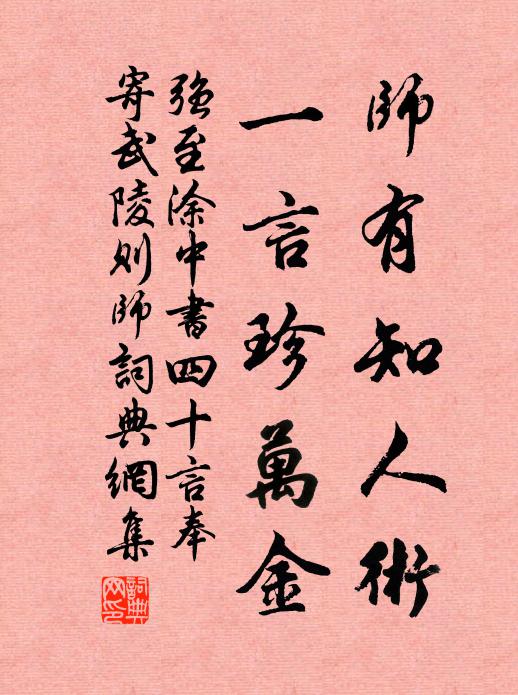 師有知人術
一言珍萬金
強至涂中書四十言奉
寄武陵則師詞典網集
詞典网印